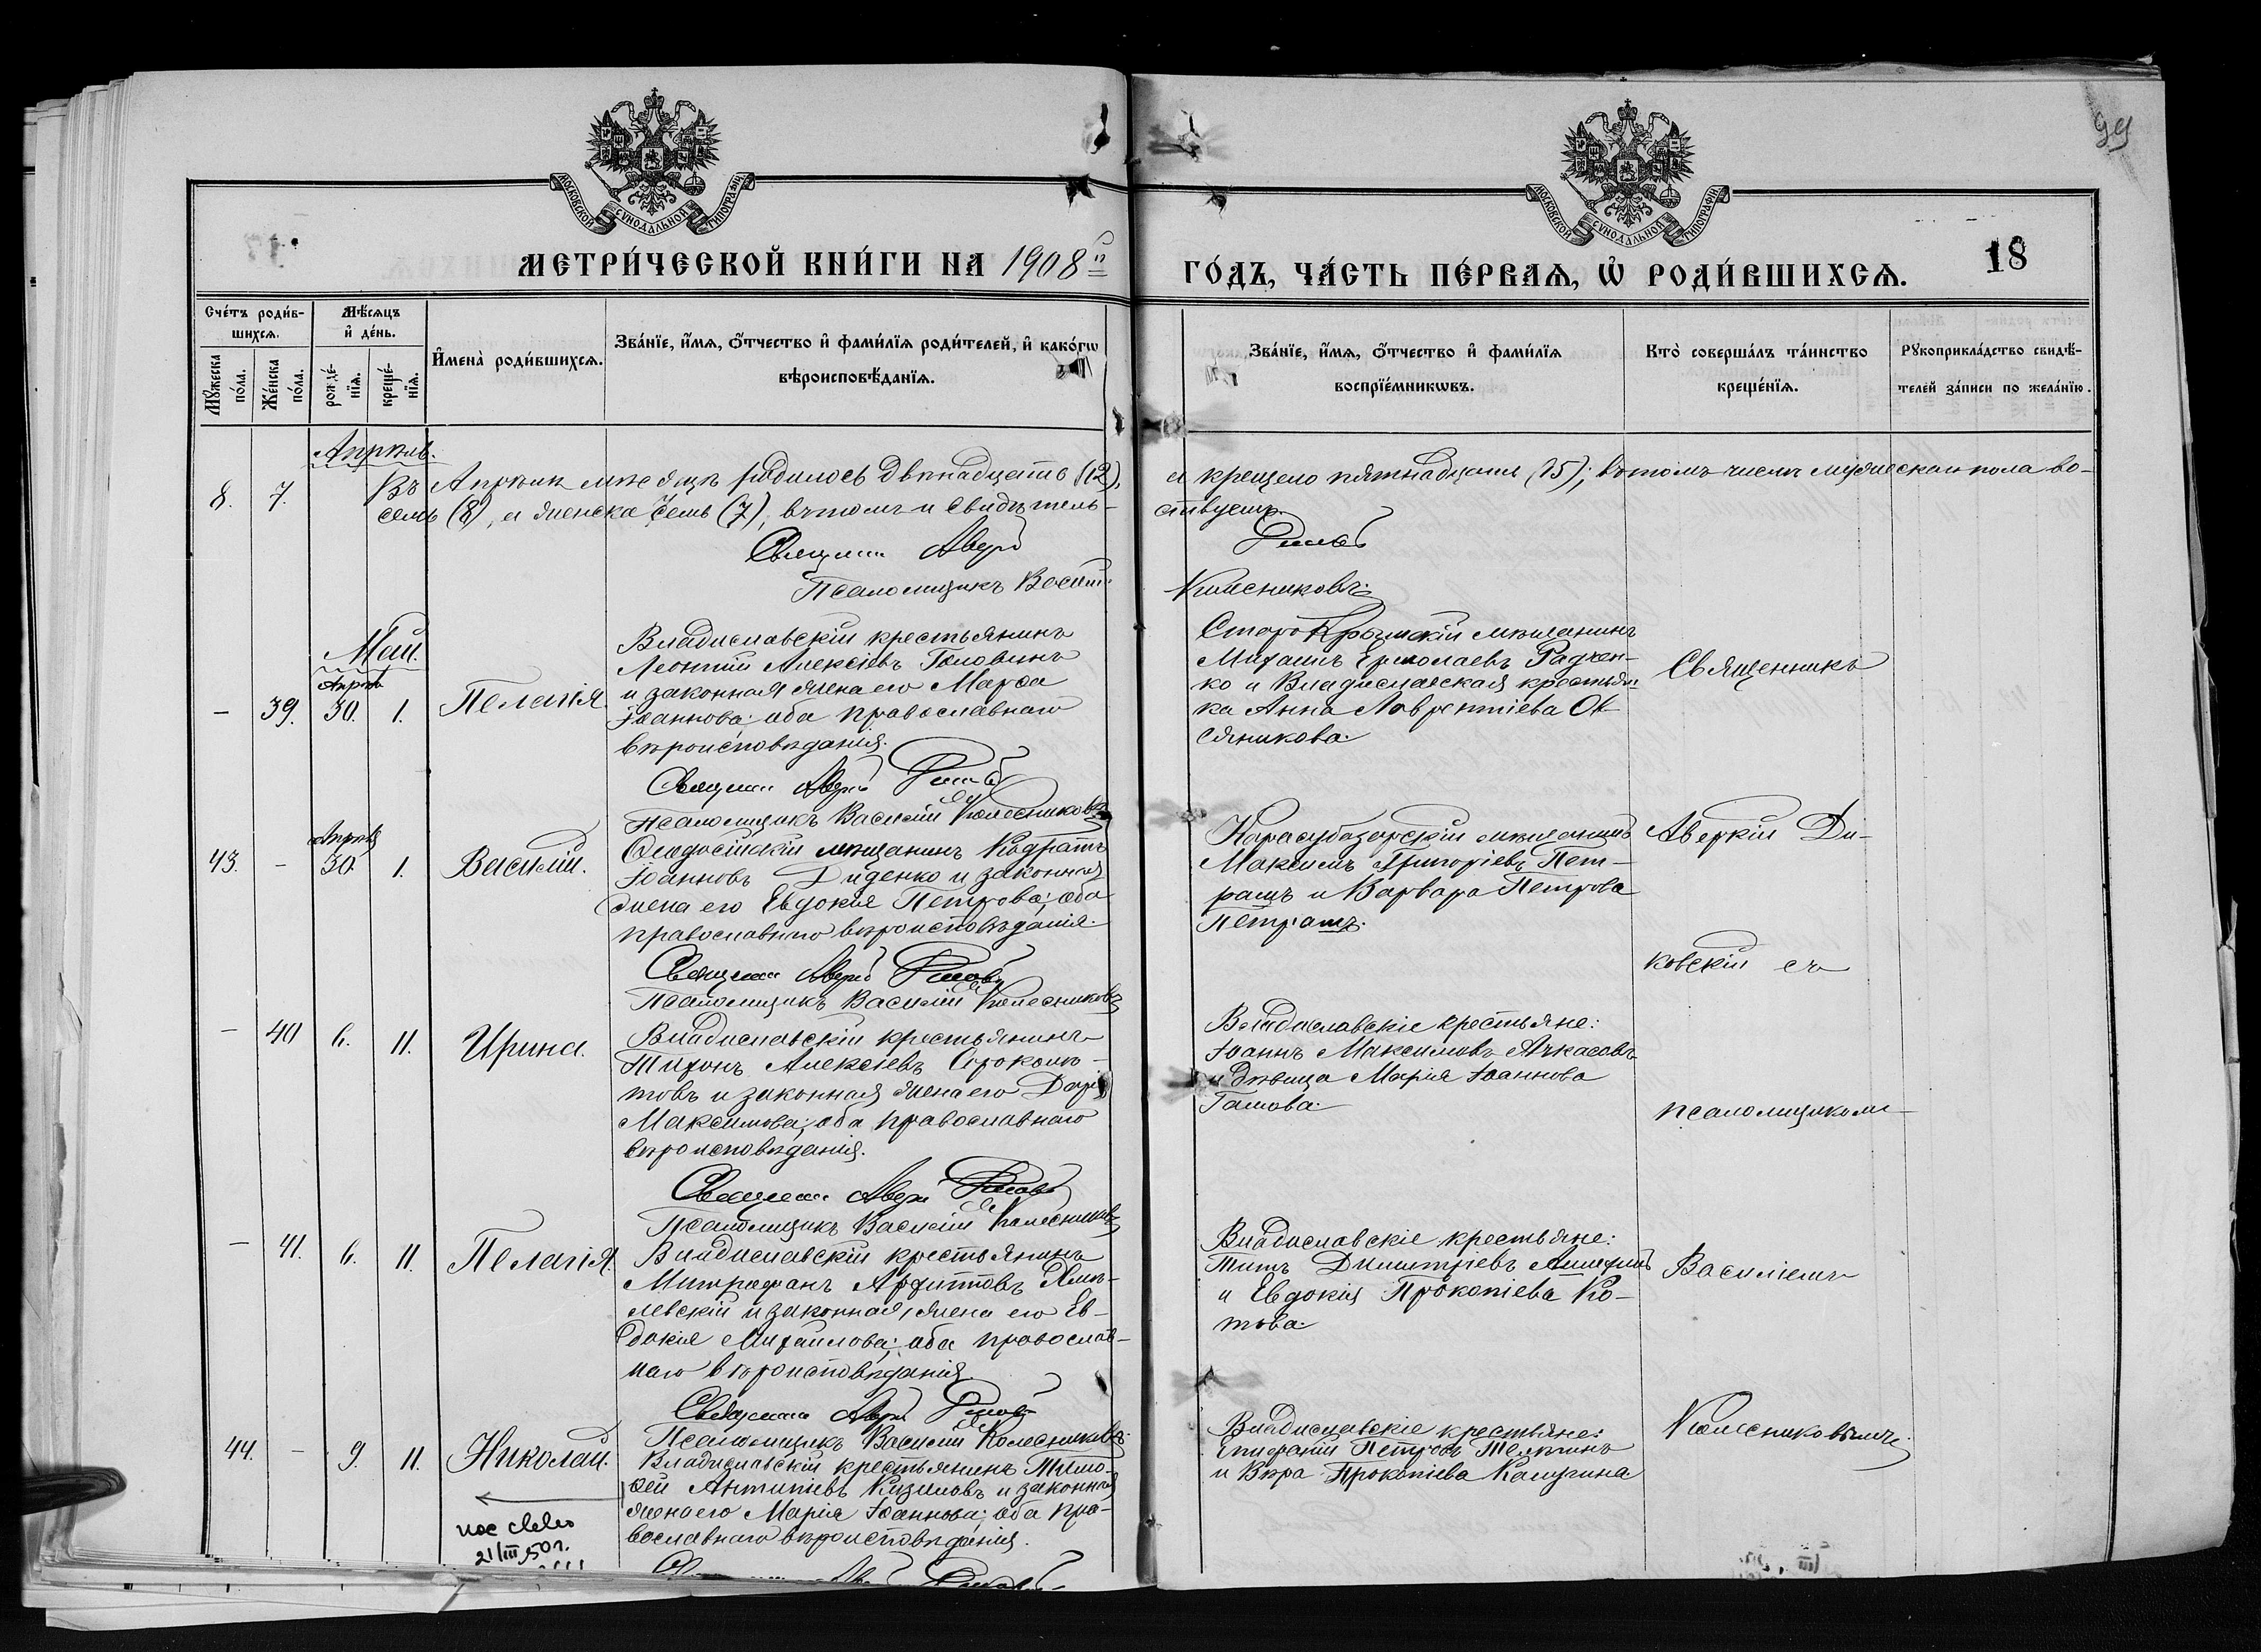 99
МОСКОВСКОЙ СѴНОДАЛЬНОЙ ТИПОГРАФІИ
МОСКОВСКОЙ СѴНОДАЛЬНОЙ ТИПОГРАФІИ
МЕТРИ́ЧЕСКОЙ КНИ́ГИ НА 1908й
ГО́ДЪ, ЧА́СТЬ ПЕ́РВАѦ, Ѡ҆ РОДИ́ВШИХСѦ.
18
Сче́тъ роди́в-
шихсѧ.
Мѣ́сѧцъ
и҆ де́нь.
Мꙋ́жеска
по́ла.
Же́нска
по́ла.
рожде́-
нїѧ.
креще́-
нїѧ.
И҆мена̀ роди́вшихсѧ.
Зва́нїе, и҆́мѧ, ѻ҆́тчество и҆ фами́лїѧ роди́телей, и҆ како́гѡ
вѣроисповѣ́данїѧ.
Зва́нїе, и҆́мѧ, ѻ҆́тчество и҆ фами́лїѧ
воспрїе́мникѡвъ.
Кто̀ соверша́лъ та́инство
креще́нїѧ.
Рꙋкоприкла́дство свидѣ́-
телей за́писи по жела́нїю.
Апрѣль.
8. 7. Въ Апрѣлѣ мѣсяцѣ родилось двѣнадцать (12), а крещено пятнадцать (15); въ томъ числѣ мужескаго пола во-
семь (8), а женска семь (7), въ томъ и свидѣтель-
ствуемъ.
Священн. Аверк
Псаломщикъ Васил
Колесниковъ.
Май.
Апрѣл
— 39. 30. 1. Пелагія.
Владиславскій крестьянинъ
Леонтій Алексіевъ Головинъ
и законная жена его Марѳа
Іоаннова; оба православнаго
вѣроисповѣданія.
Священн. Аверк
Псаломщикъ Василій Колесниковъ
СтароКрымскій мѣщанинъ
Михаилъ Ермолаевъ Радчен-
ко и Владиславская крестьян-
ка Анна Лаврентіева Ов-
сяникова.
Священникъ
Апрѣля
43. — 30. 1. Василій.
Ѳеодосійскій мѣщанинъ Кодратъ
Іоанновъ Диденко и законная
жена его Евдокія Петрова; оба
православнаго вѣроисповѣданія.
Священн. Аверк
Псаломщикъ Василій Колесниковъ
Карасубазарскій мѣщанинъ
Максимъ Григоріевъ Пет-
рашъ и Варвара Петрова
Петрашъ.
Аверкій Ди-
ковскій съ
— 40 6. 11. Ирина.
Владиславскій крестьянинъ
Тихонъ Алексіевъ
товъ и законная жена его Дарія
Максимова; оба православнаго
вѣроисповѣданія.
Священн. Аверк
Псаломщикъ Василій Колесниковъ
Владиславскіе крестьяне:
Іоаннъ Максимовъ Ачкасовъ
и дѣвица Марія Іоаннова
Гашова.
псаломщикомъ
— 41. 6. 11. Пелагія.
Владиславскій крестьянинъ
Митрофанъ
левскій и законная жена его Ев-
докія Михаилова; оба православ-
наго вѣроисповѣданія.
Священн. Аверк
Псаломщикъ Василій Колесниковъ.
Владиславскіе крестьяне:
Титъ Димитріевъ
и Евдокія Прокопіева Ко-
това.
Василіемъ
44. — 9. 11. Николай.
Владиславскій крестьянинъ Тимо-
ѳей Антипіевъ Кизиловъ и законная
жена его Марія Іоаннова; оба пра-
вославнаго вѣроисповѣданія.
Владиславскіе крестьяне:
Епифаній Петровъ Телегинъ
и Вѣра Прокопіева Калугина
Колесниковымъ.
21/III 50 г.